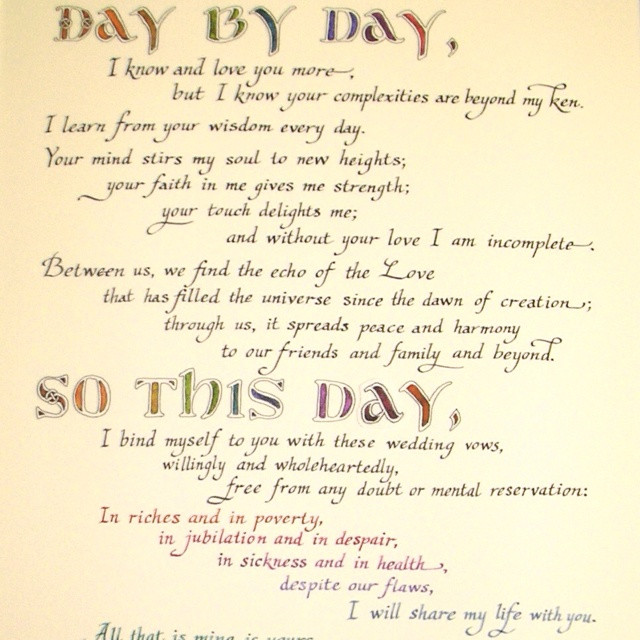 DAY BY DAY,
I know and love you more,
but I know your complexities are beyond my ken.
I learn from your wisdom every day.
Your mind stirs my soul to new heights;
your faith in me gives me strength;
your touch delights me;
and without your love I am incomplete.
Between us, we find the echo of the Love
that has filled the universe since the dawn of creation;
through us, it spreads peace and harmony
to our friends and family and beyond.
SO THIS DAY,
I bind myself to you with these wedding vows,
willingly and wholeheartedly,
free from any doubt or mental reservation:
In riches and in poverty,
in jubilation and in despair,
in sickness and in health,
despite our flaws,
I will share my life with you.
All that is mine is yours